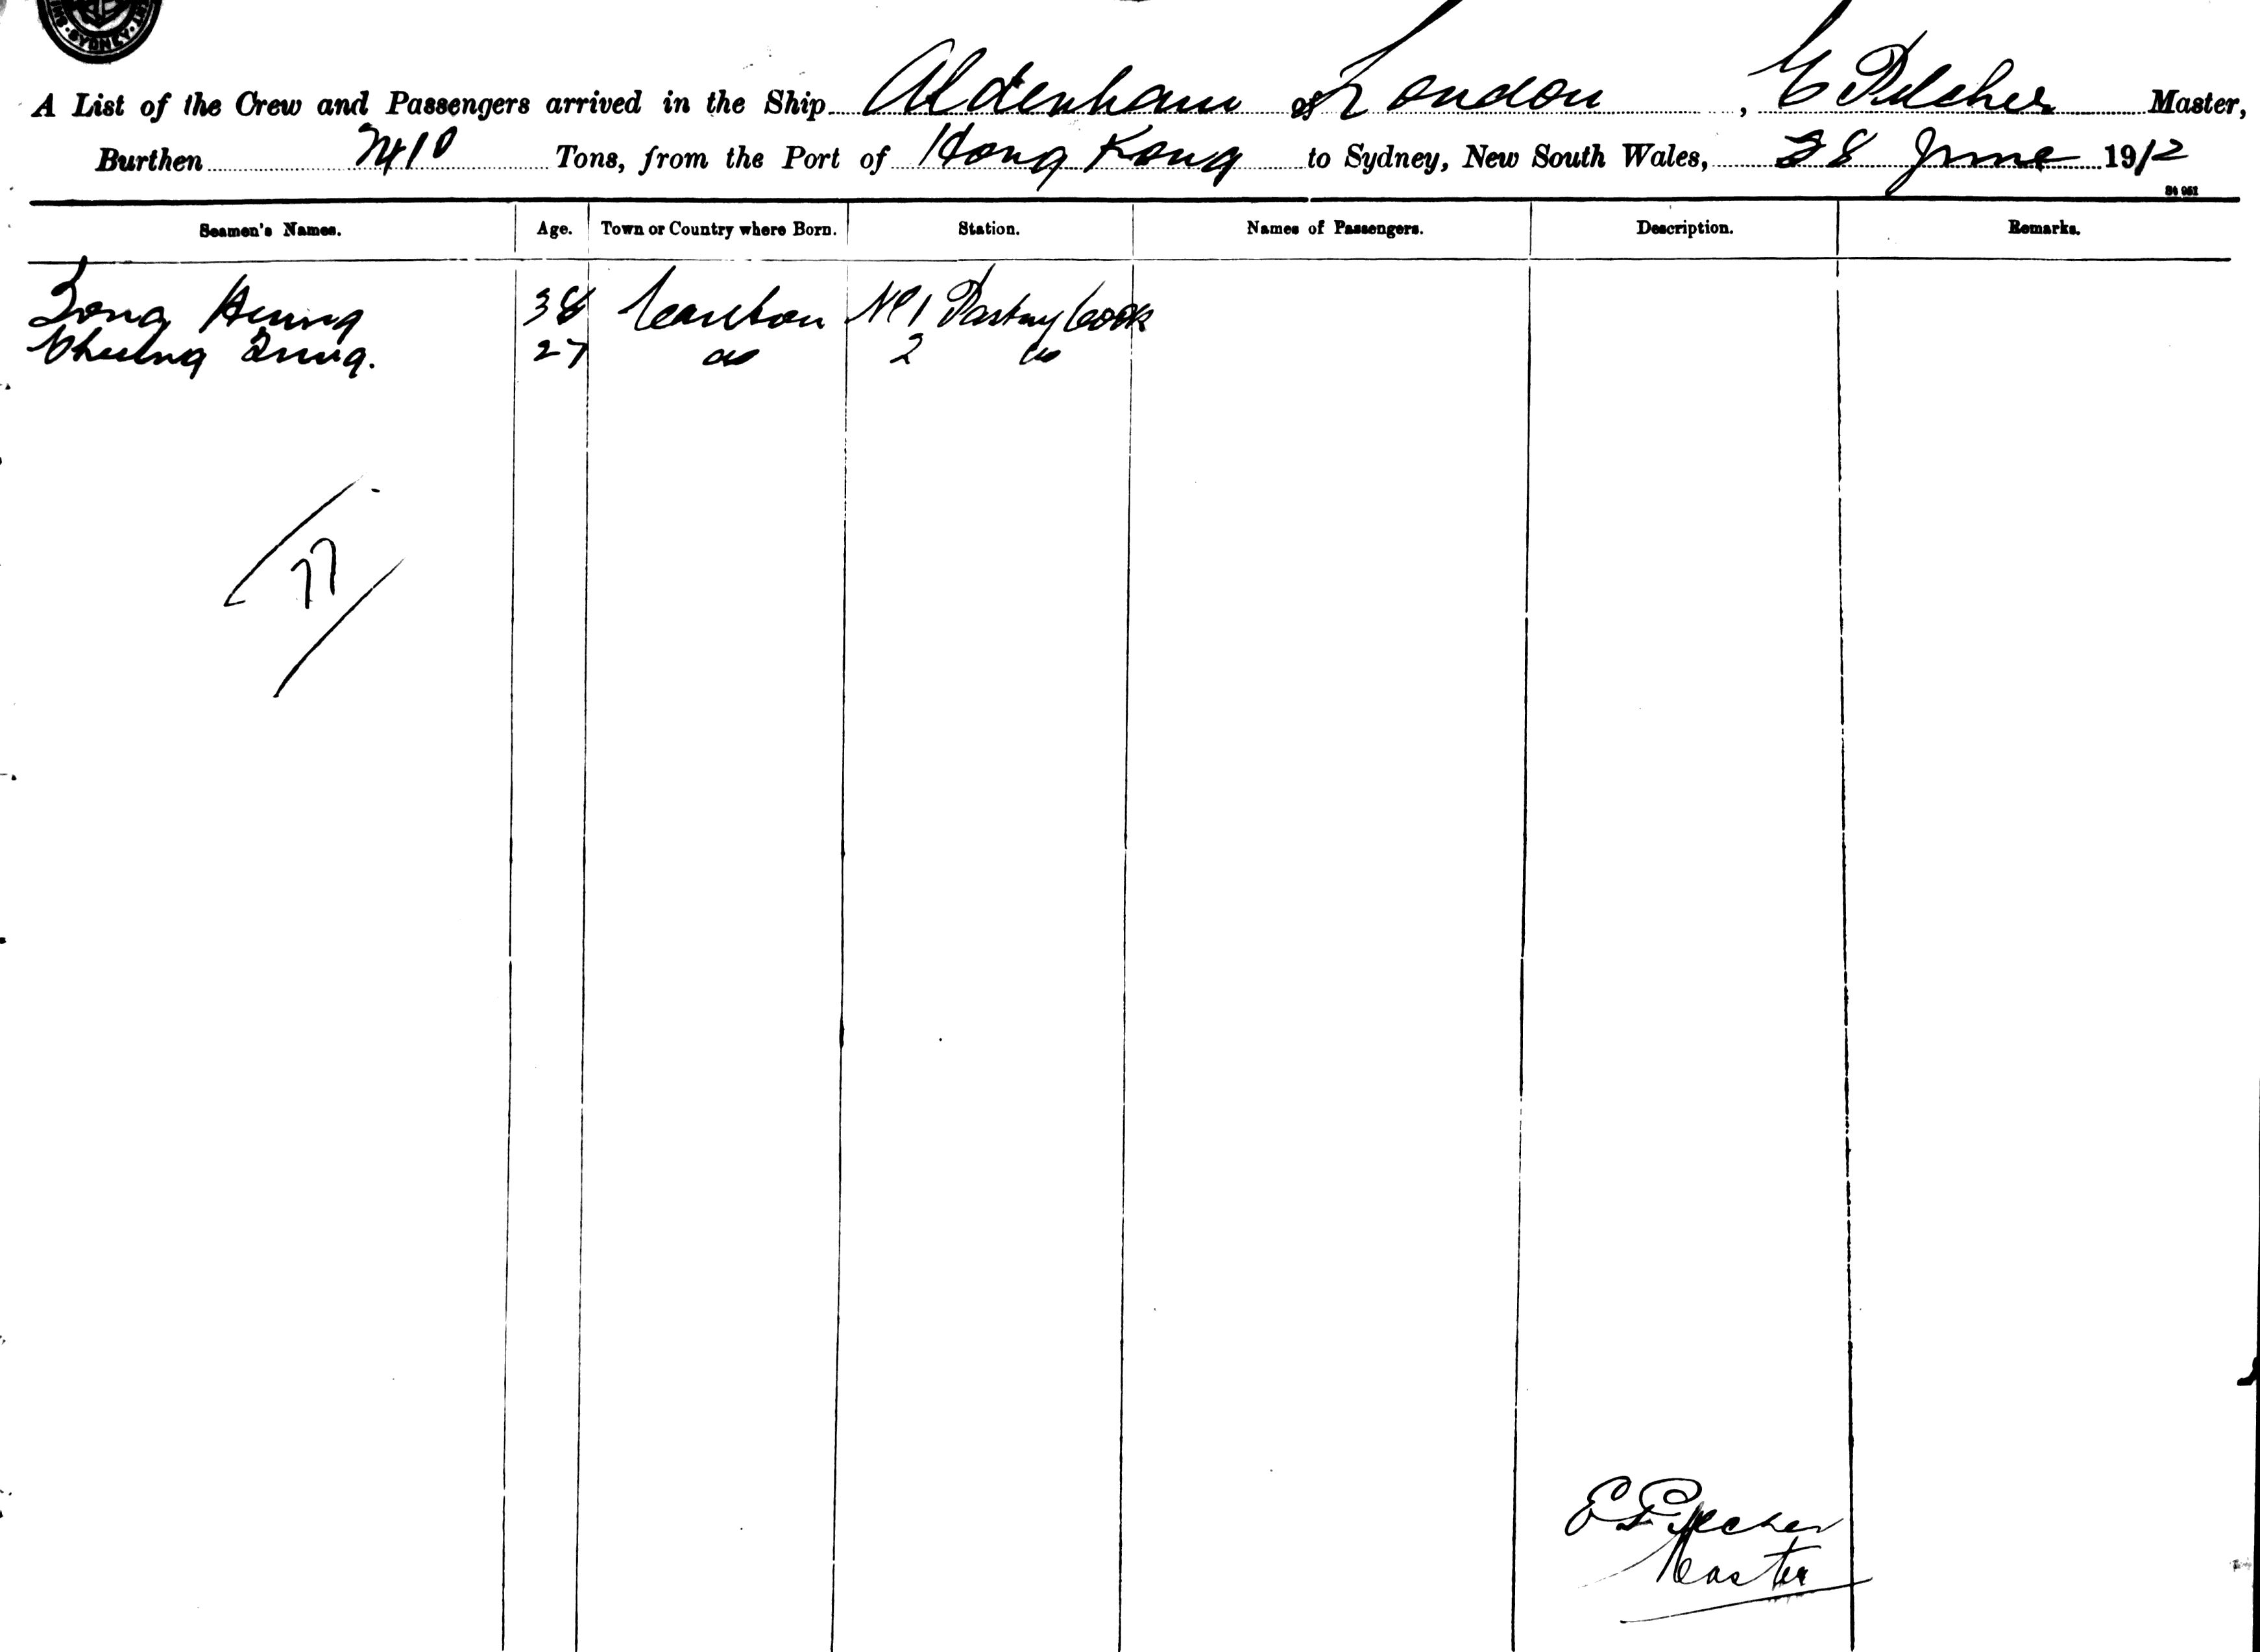 SYDNEY
A List of the Crew and Passengers arrived in the Ship Aldenham of London, E Pilcher Master,
Burthen Tons, from the Port of Hong Kong to Sydney, New South Wales, 28 June 1912
Seamen's Names. Age. Town or Country where Born. Station. Names of Passengers. Description. Remarks.
Hung 38 Canton No 1 Pastry Cook
27 do 2 do
77
E Pilcher
Master